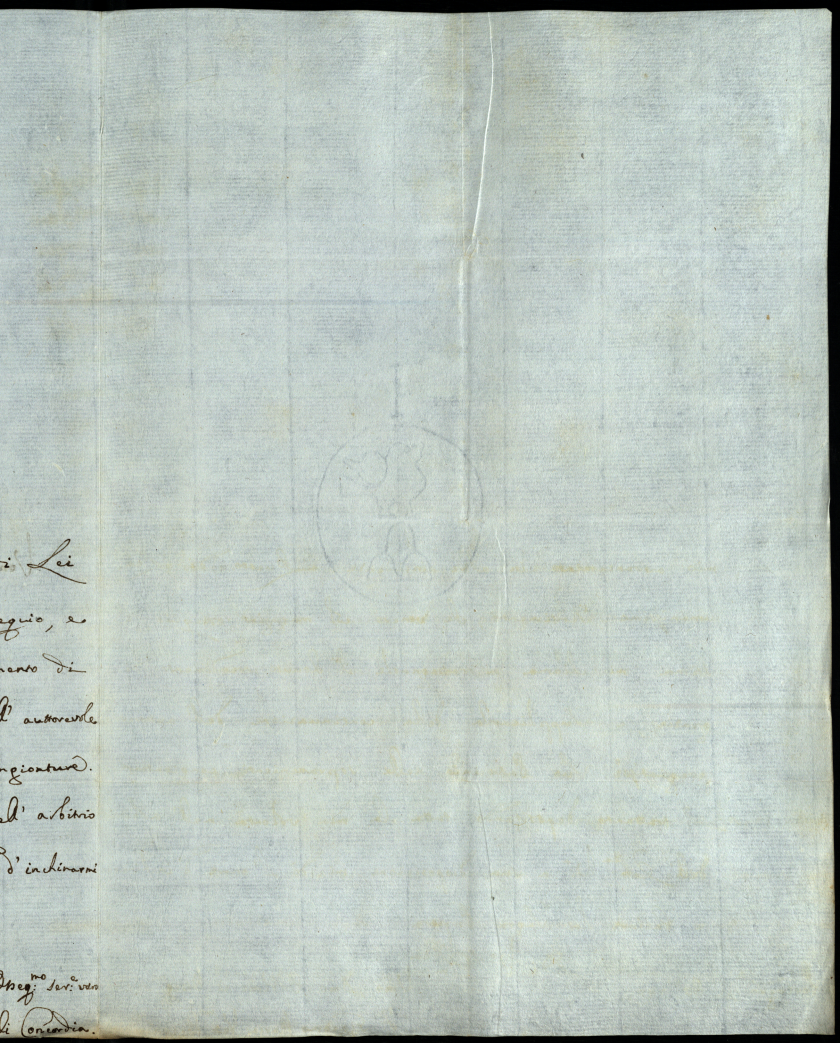 i Lei
equio, e
mento di
ll' auttorevole
ngionture.
ell' arbitrio
d' inchinarmi
Osseq:mo Ser:e vero
di Concordia.